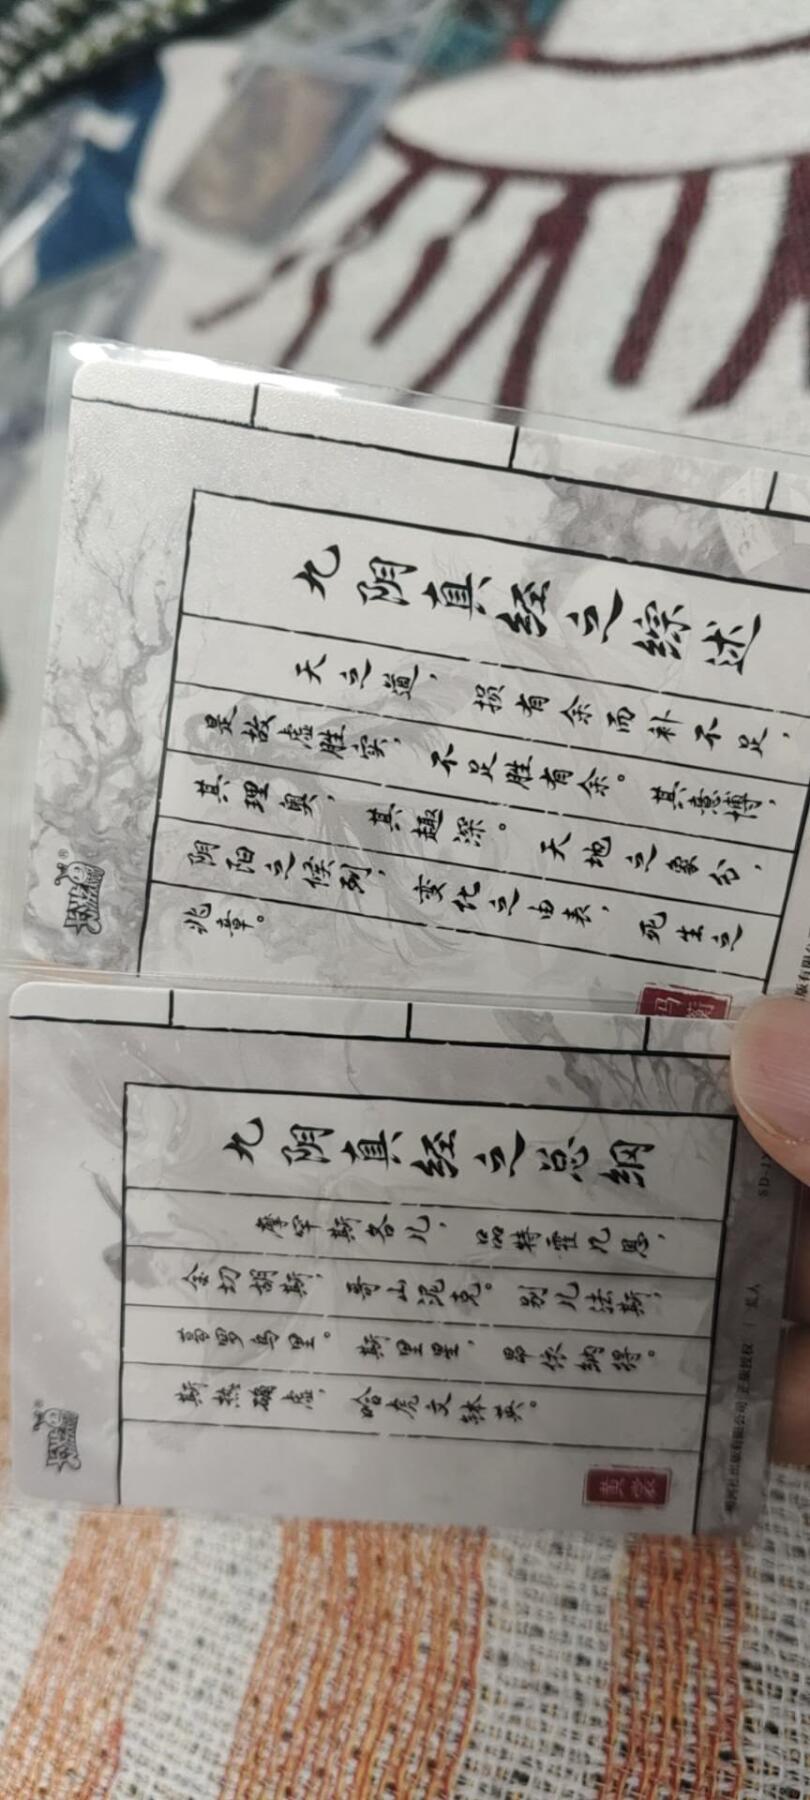 九阴真经之综述
天之道，损有余而补不足，
是故虚胜实，不足胜有余。其意博，
其理奥，其趣深。天地之象分，
阴阳之候列，变化之由表，死生之
兆章。
九阴真经之总纲
摩罕斯各儿，品特霍几恩，
金切胡斯，哥山泥克。别儿法斯，
葛罗乌里。斯里星，昂依纳得。
斯热确虚，哈虎文钵英。
黄裳
正版授权